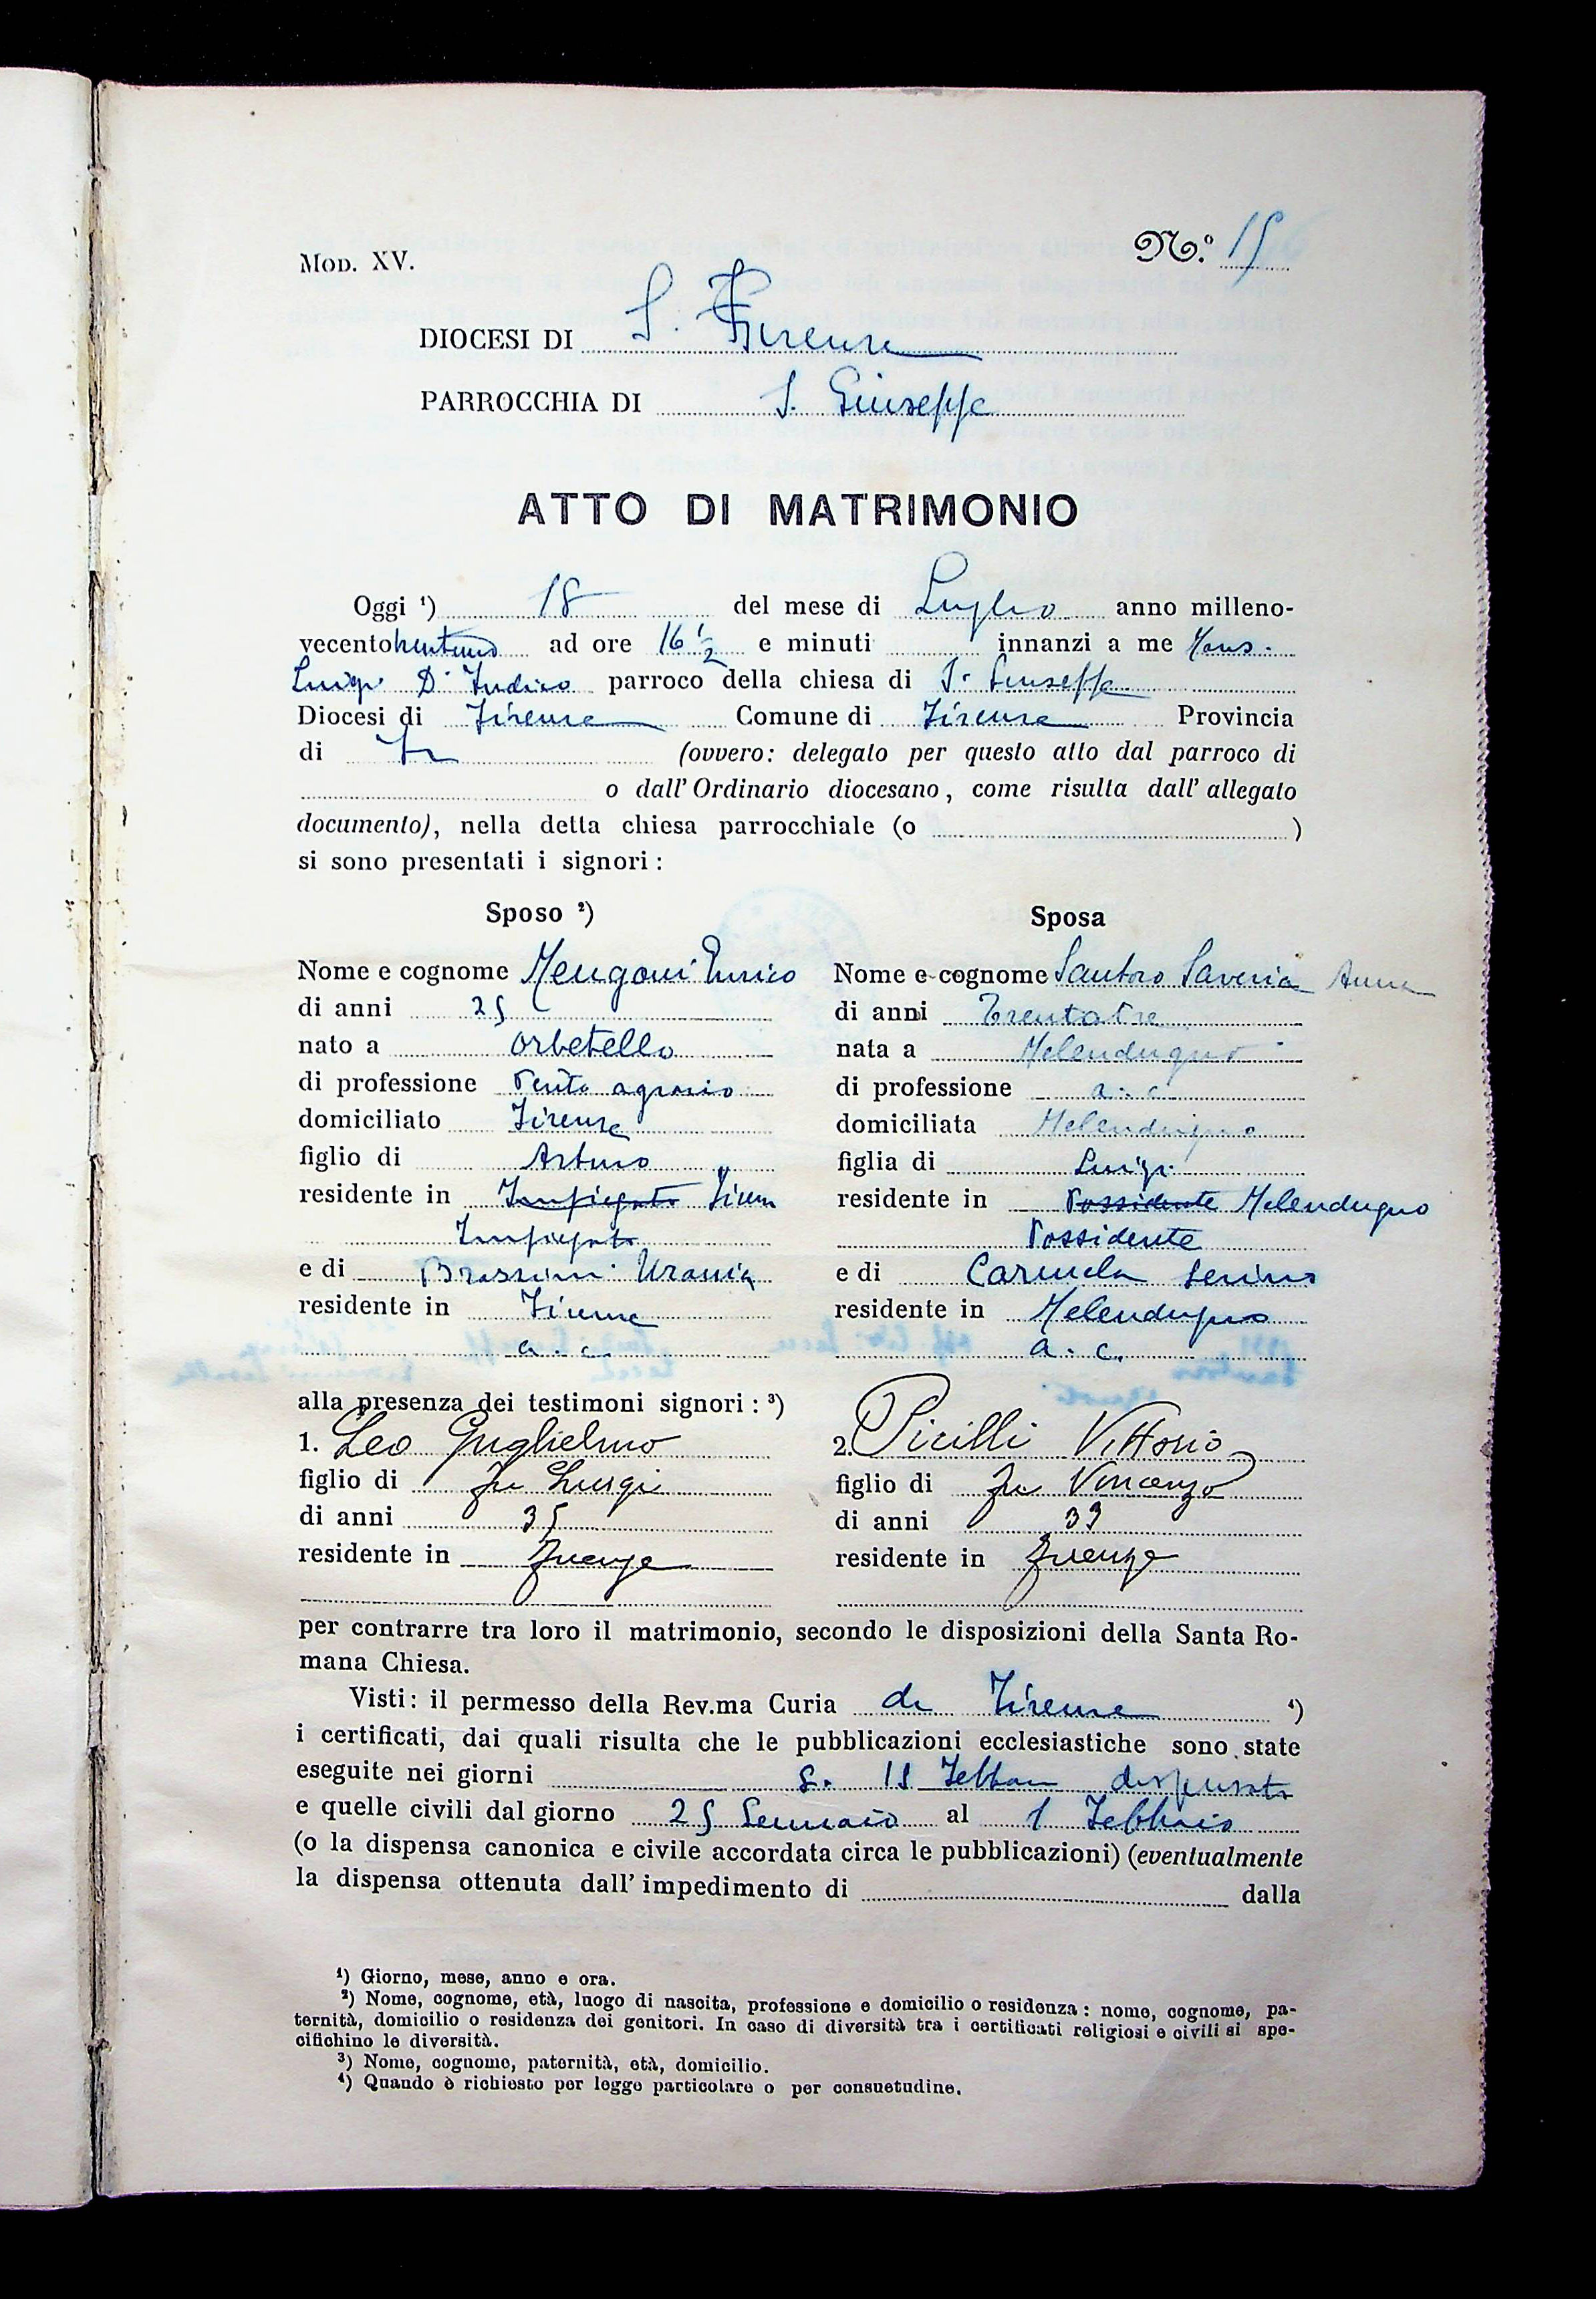 Mod. XV.
N.º 15
DIOCESI DI S. Firenze
PARROCCHIA DI S. Giuseppe
ATTO DI MATRIMONIO
Oggi ¹) 18 del mese di Luglio anno milleno-
vecento trentuno ad ore 16 ½ e minuti innanzi a me Mons.
Luigi D'Indico parroco della chiesa di S. Giuseppe
Diocesi di Firenze Comune di Firenze Provincia
di (ovvero: delegato per questo atto dal parroco di
o dall'Ordinario diocesano, come risulta dall'allegato
documento), nella detta chiesa parrocchiale (o )
si sono presentati i signori:
Sposo ²)
Nome e cognome Mengoni Enrico
di anni 25
nato a Orbetello
di professione Perito agrario
domiciliato Firenze
figlio di Arturo
residente in Impiegato Firen
Impiegato
e di Brassini Urania
residente in Firenze
a. c.
Sposa
Nome e cognome Santoro Saveria Anna
di anni Trentatre
nata a Melendugno
di professione a. c.
domiciliata Melendugno
figlia di Luigi
residente in Possidente Melendugno
Possidente
e di Carmela Serino
residente in Melendugno
a. c.
alla presenza dei testimoni signori: ³)
1. Leo Guglielmo
figlio di fu Luigi
di anni 35
residente in Firenze
2. Picilli Vittorio
figlio di fu Vincenzo
di anni 33
residente in Firenze
per contrarre tra loro il matrimonio, secondo le disposizioni della Santa Ro-
mana Chiesa.
Visti: il permesso della Rev.ma Curia di Firenze ⁴)
i certificati, dai quali risulta che le pubblicazioni ecclesiastiche sono state
eseguite nei giorni 8. 15 Febbraio dispensati
e quelle civili dal giorno 25 Gennaio al 1 Febbraio
(o la dispensa canonica e civile accordata circa le pubblicazioni) (eventualmente
la dispensa ottenuta dall'impedimento di dalla
¹) Giorno, mese, anno e ora.
²) Nome, cognome, età, luogo di nascita, professione e domicilio o residenza: nome, cognome, pa-
ternità, domicilio o residenza dei genitori. In caso di diversità tra i certificati religiosi e civili si spe-
cifichino le diversità.
³) Nome, cognome, paternità, età, domicilio.
⁴) Quando è richiesto per legge particolare o per consuetudine.